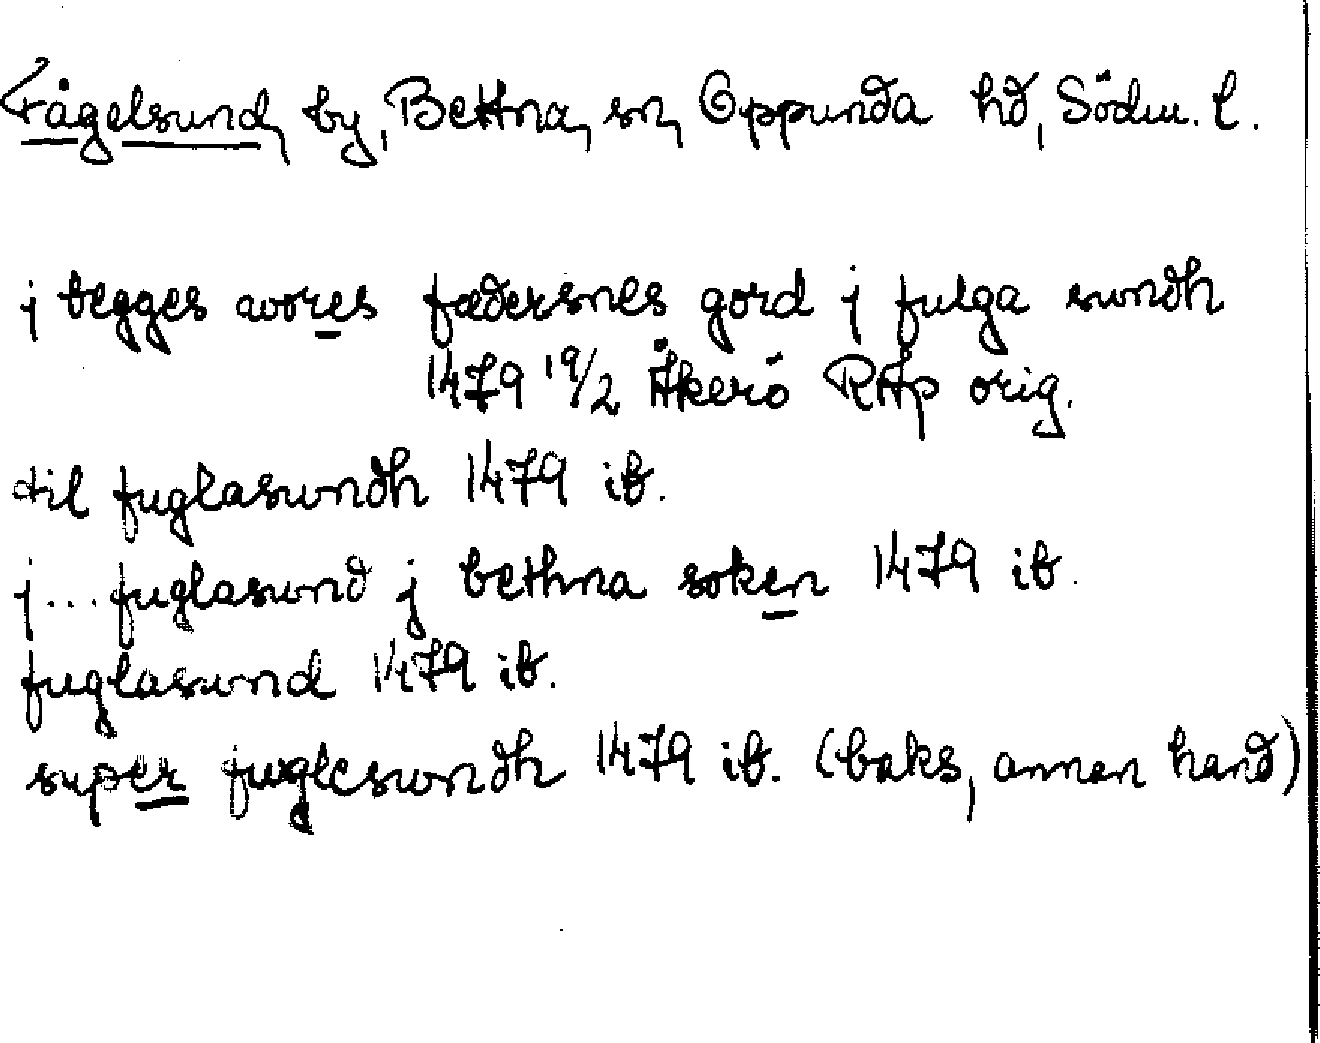 Fågelsund, by, Bettna, sn, Oppunda hd, Södm. l.
j begges wores fædersnes gord j fulga sundh
1479 19/2 Åkerö RAp orig.
til fuglasundh 1479 ib.
j... fuglasund j bethna soken 1479 ib.
fuglasund 1479 ib.
super fuglesundh 1479 ib. (baks, annan hand)